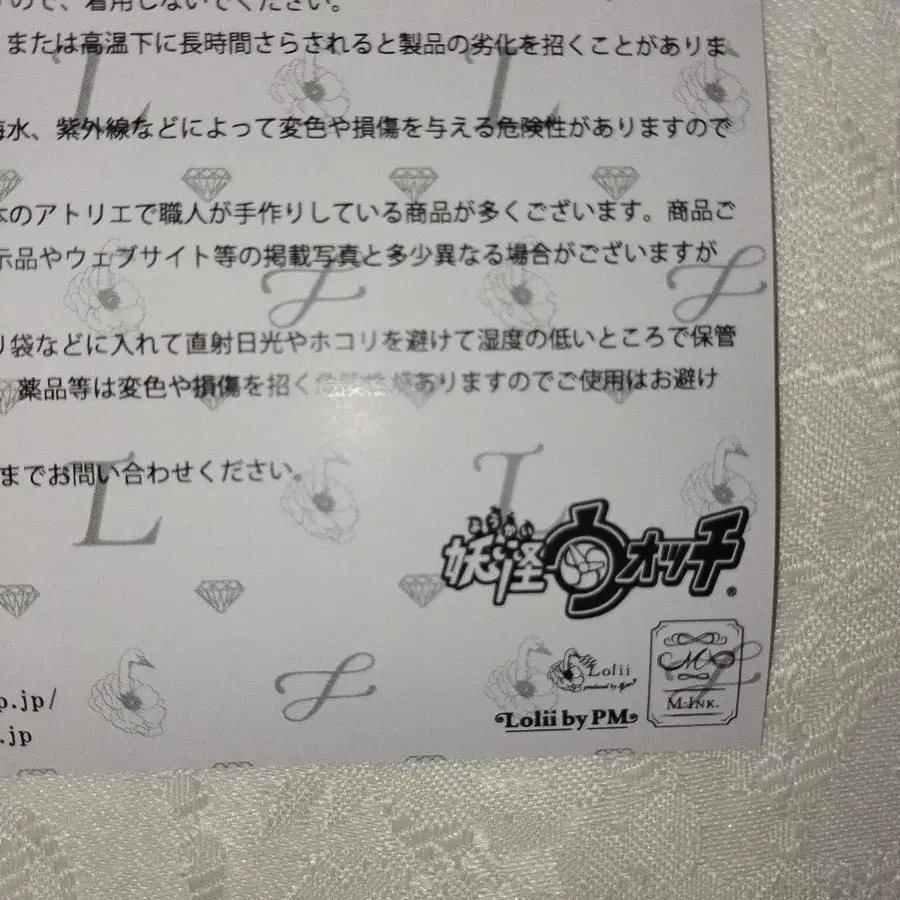 ので、着用しないでください。
または高温下に長時間さらされると製品の劣化を招くことがありま
海水、紫外線などによって変色や損傷を与える危険性がありますので
本のアトリエで職人が手作りしている商品が多くございます。商品ご
示品やウェブサイト等の掲載写真と多少異なる場合がございますが
り袋などに入れて直射日光やホコリを避けて湿度の低いところで保管
、薬品等は変色や損傷を招く危険性がありますのでご使用はお避け
までお問い合わせください。
妖怪ウォッチ®
p.jp/
.jp
Lolii
produced by
Lolii by PM
M
M-INK.